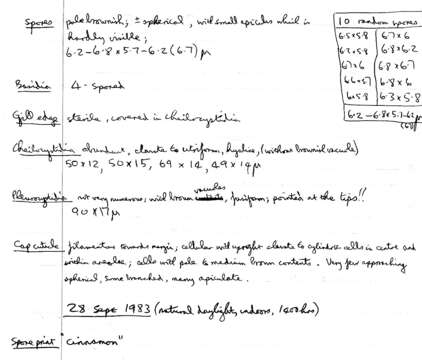 Spores pale brownish; ± spherical, with small apiculus which is
hardly visible;
6.2-6.8 x 5.7-6.2 (6.7) µ
10 random spores
6.5x5.8 6.7x6
6.2x5.8 6.8x6.2
6.7x6 6.8x6.7
6.6x5.7 6.8x6
6x5.8 6.3x5.8
6.2-6.8x5.7-6.2µ
(6.7)
Basidia 4-spored
Gill edge sterile, covered in cheilocystidia
Cheilocystidia abundant, clavate to utriform, hyaline, (without brownish vacuole)
50x12, 50x15, 69x14, 49x14µ
Pleurocystidia not very numerous; with brown vacuoles, fusiform; pointed at the tips!!
90x17µ
Cap cuticle filamentous towards margin; cellular with upright clavate to cylindric cells in centre and
within areolae; cells with pale to medium brown contents. Very few approaching
spherical, some branched, many apiculate.
28 Sept 1983 (natural daylight, indoors, 1400hrs)
Spore print "cinnamon"